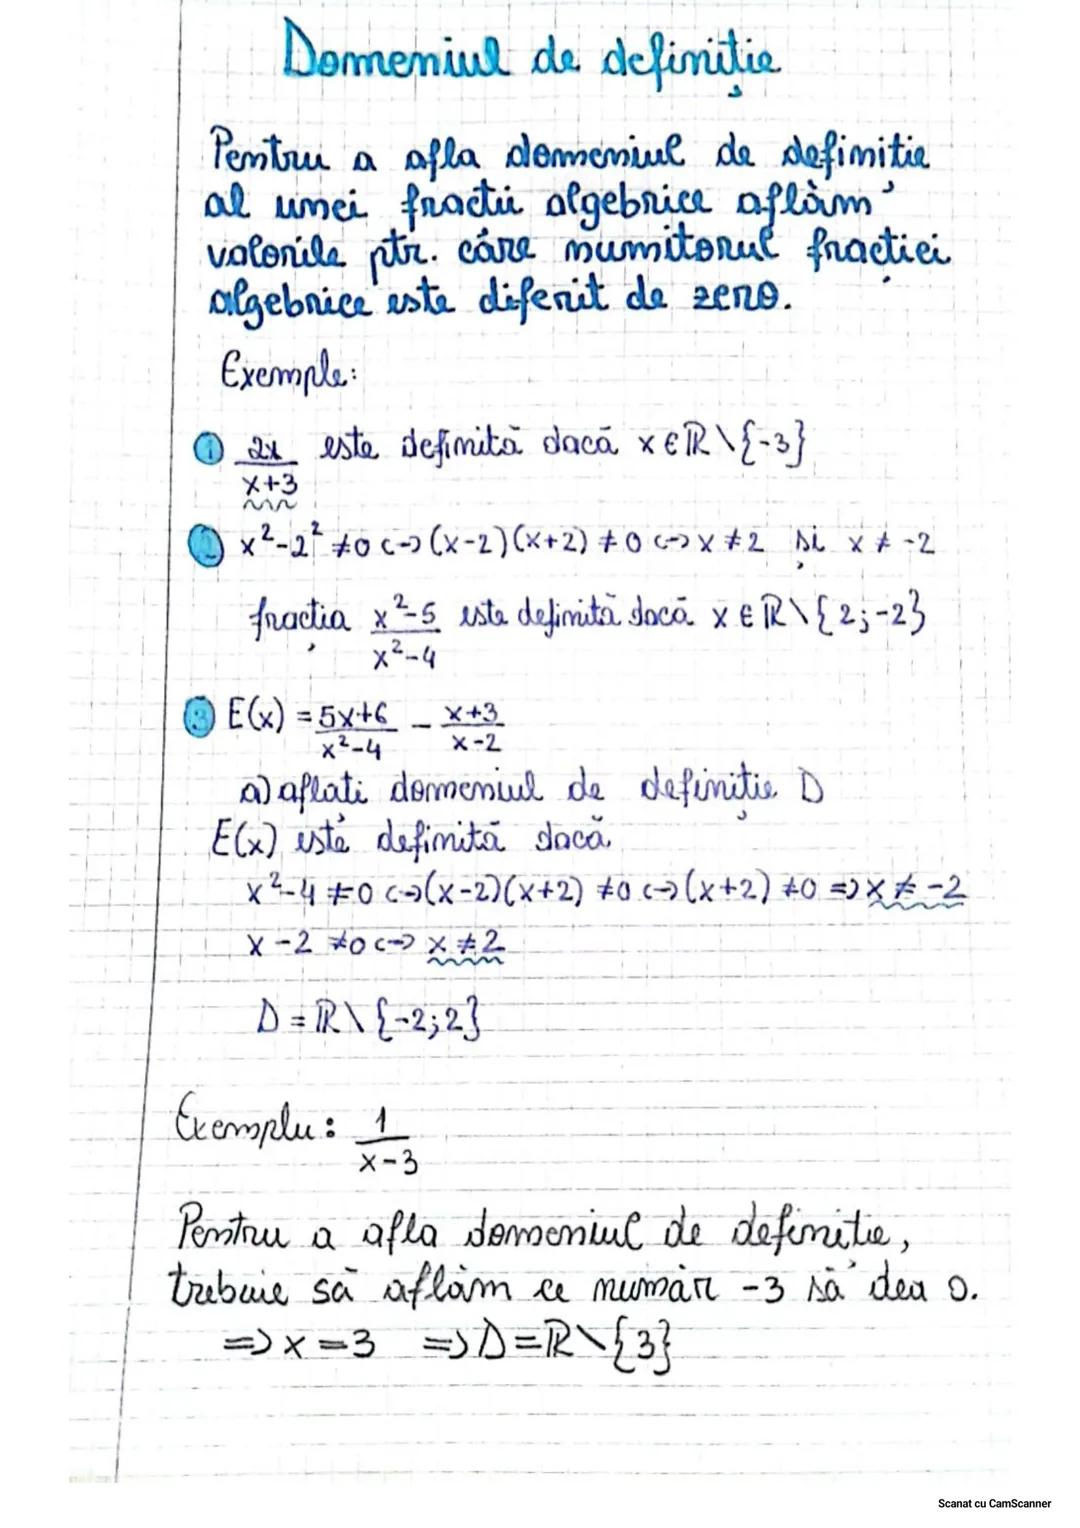 Domeniul de definiție
Pentru a afla domeniul de definiție
al unei fracții algebrice aflăm
valorile ptr. care numitorul fracției
algebrice este diferit de zero.
Exemple:
① 2x/x+3 este definită dacă x∈ℝ\{-3}
② x²-2² ≠0 <-> (x-2)(x+2) ≠0 <-> x≠2 și x≠-2
fracția x²-5/x²-4 este definită dacă x∈ℝ\{2;-2}
③ E(x) = 5x+6/x²-4 - x+3/x-2
a) aflați domeniul de definiție D
E(x) este definită dacă
x²-4 ≠0 <-> (x-2)(x+2) ≠0 <-> (x+2) ≠0 => x≠-2
x-2 ≠0 <-> x≠2
D = ℝ\{-2;2}
Exemplu: 1/x-3
Pentru a afla domeniul de definitie,
trebuie să aflăm ce număr -3 să dea 0.
=> x=3 => D=ℝ\{3}
Scanat cu CamScanner